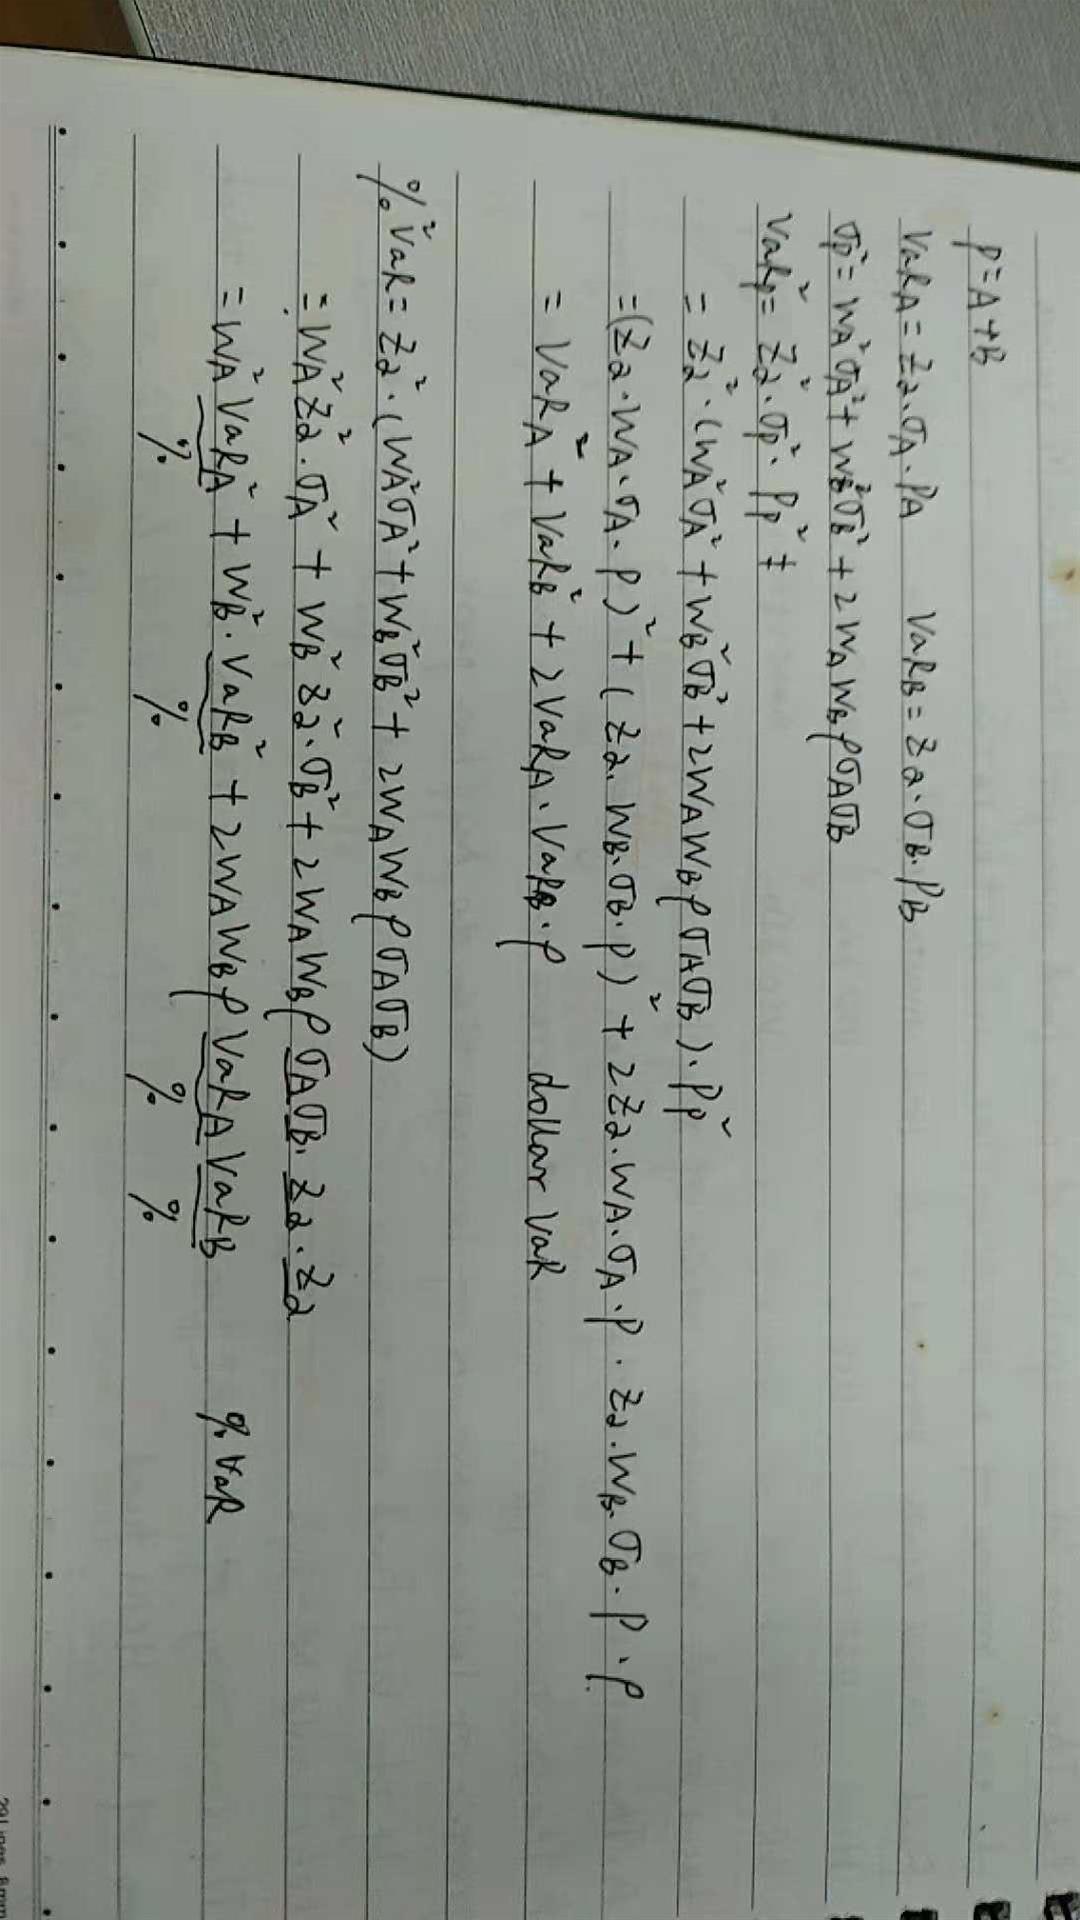 P=A+B
VaRA = Zα·σA·PA VaRB = Zα·σB·PB
σP² = WA²σA² + WB²σB² + 2WAWBρσAσB
VaRP² = Zα²·σP²·PP² +
= Zα²·(WA²σA² + WB²σB² + 2WAWBρσAσB)·PP²
=(Zα·WA·σA·P)² + (Zα·WB·σB·P)² + 2Zα·WA·σA·P·Zα·WB·σB·P·ρ
= VaRA² + VaRB² + 2VaRA·VaRB·ρ dollar VaR
%VaR² = Zα²·(WA²σA² + WB²σB² + 2WAWBρσAσB)
= WA²Zα²·σA² + WB²Zα²·σB² + 2WAWBρσAσB·Zα·Zα
= WA²VaRA² + WB²·VaRB² + 2WAWBρVaRAVaRB %VaR
% % % %